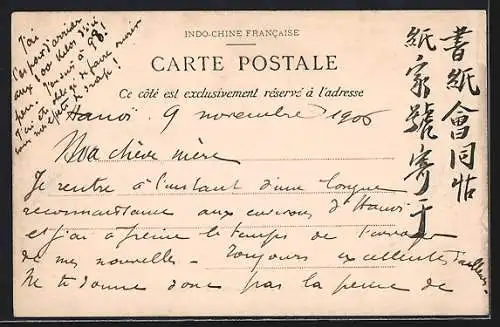 INDO-CHINE FRANÇAISE
CARTE POSTALE
Ce côté est exclusivement réservé à l'adresse
J'ai
l'espoir d'arriver
aux 100 kilos d'ici
J'en suis à 98!
Hanoï 9 novembre 1906
Ma chère mère
Je rentre à l'instant d'une longue
reconnaissance aux environs d'Hanoï
et j'ai à peine le temps de t'envoyer
de mes nouvelles - Toujours excellentes d'ailleurs -
Ne te donne donc pas la peine de
書紙會同帖
紙家號寄于